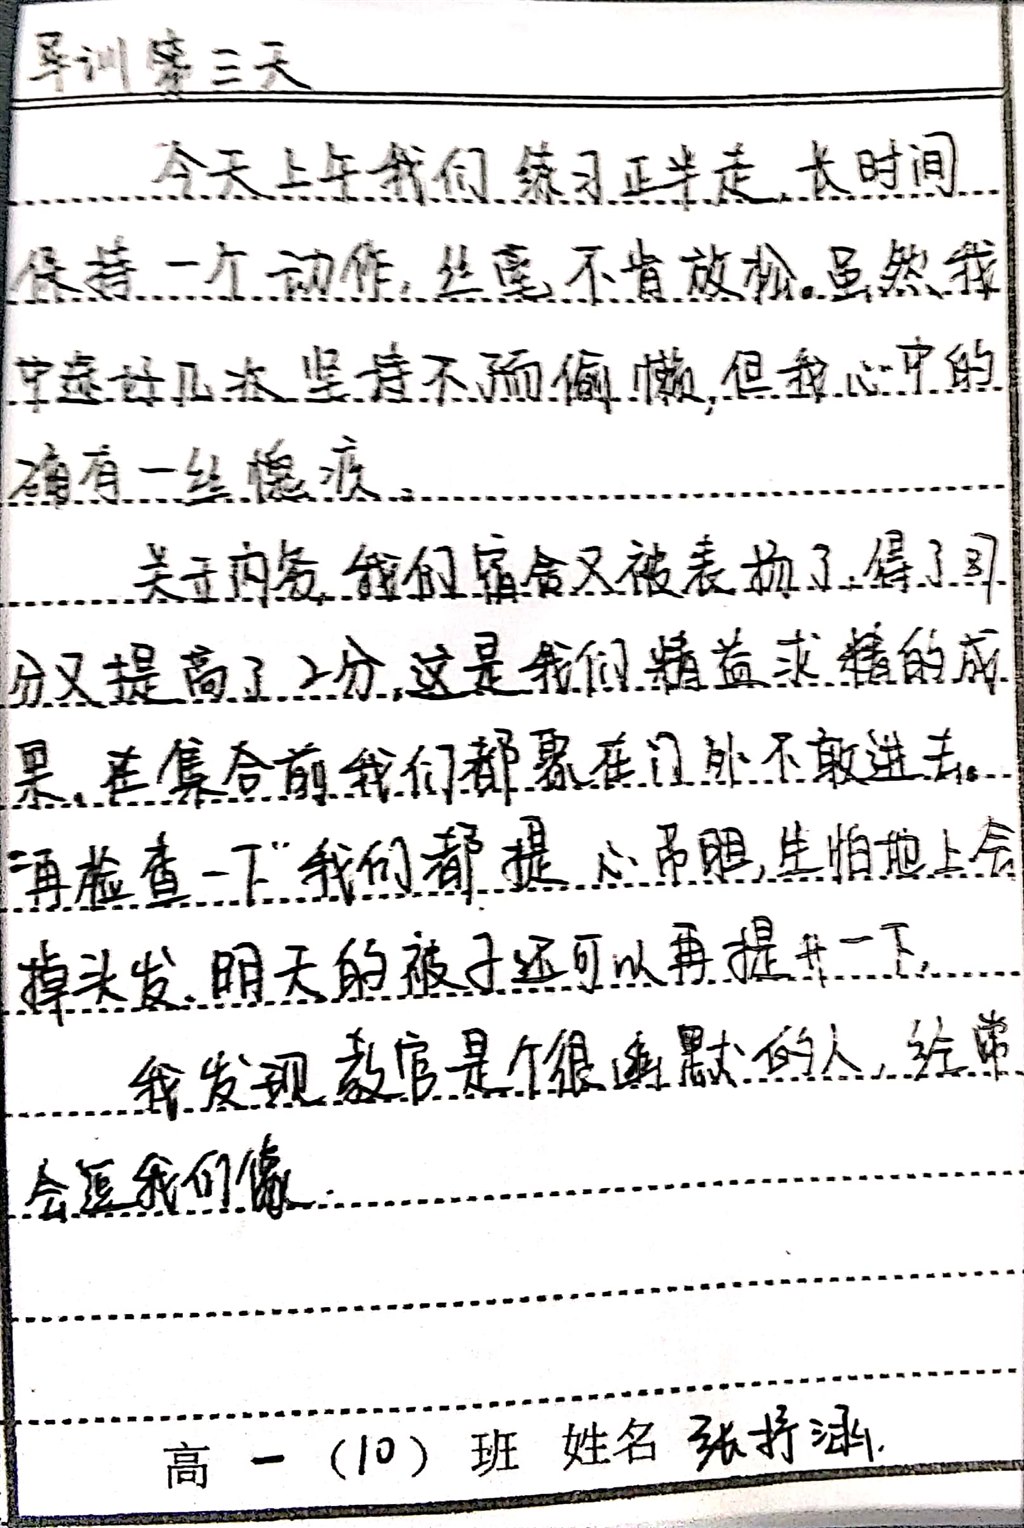 军训第三天
今天上午我们练习正步走,长时间
保持一个动作,丝毫不肯放松。虽然我
中途好几次坚持不了而偷懒,但我心中的
确有一丝愧疚。
关于内务,我们宿舍又被表扬了,得了
分又提高了2分,这是我们精益求精的成
果,在集合前我们都聚在门外不敢进去。
"再检查一下"我们都提心吊胆,生怕地上会
掉头发,明天的被子还可以再提升一下,
我发现教官是个很幽默的人,经常
会逗我们
高一(10)班 姓名 张涵